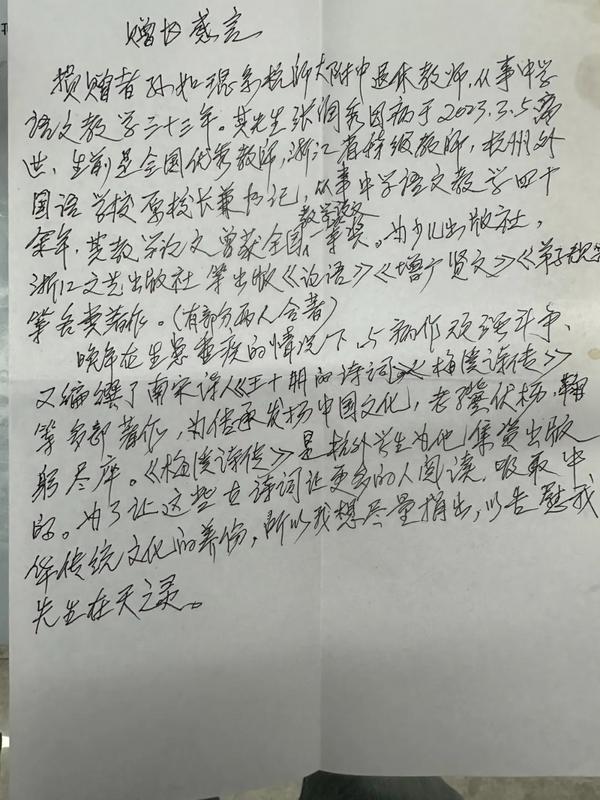 赠书感言
捐赠者孙如琨系杭师大附中退休教师，从事中学
语文教学三十三年。其先生张润秀因病于2023.3.5.离
世，生前是全国优秀教师，浙江省特级教师，杭州外
国语学校原校长兼书记，从事中学语文教学四十
余年，其教学论文曾获全国教学论文一等奖。为少儿出版社，
浙江文艺出版社等出版《论语》《增广贤文》《弟子规》等
等各类著作。（有部分两人合著）
晚年在生患重疾的情况下，与病作顽强斗争，
又编撰了南宋诗人《王十朋的诗词》《梅溪诗传》
等多部著作，为传承发扬中国文化，老骥伏枥，鞠
躬尽瘁。《梅溪诗传》是杭外学生为他集资出版
的。为了让这些古诗词让更多的人阅读，吸取中
华传统文化的养份，所以我想尽量捐出，以告慰我
先生在天之灵。